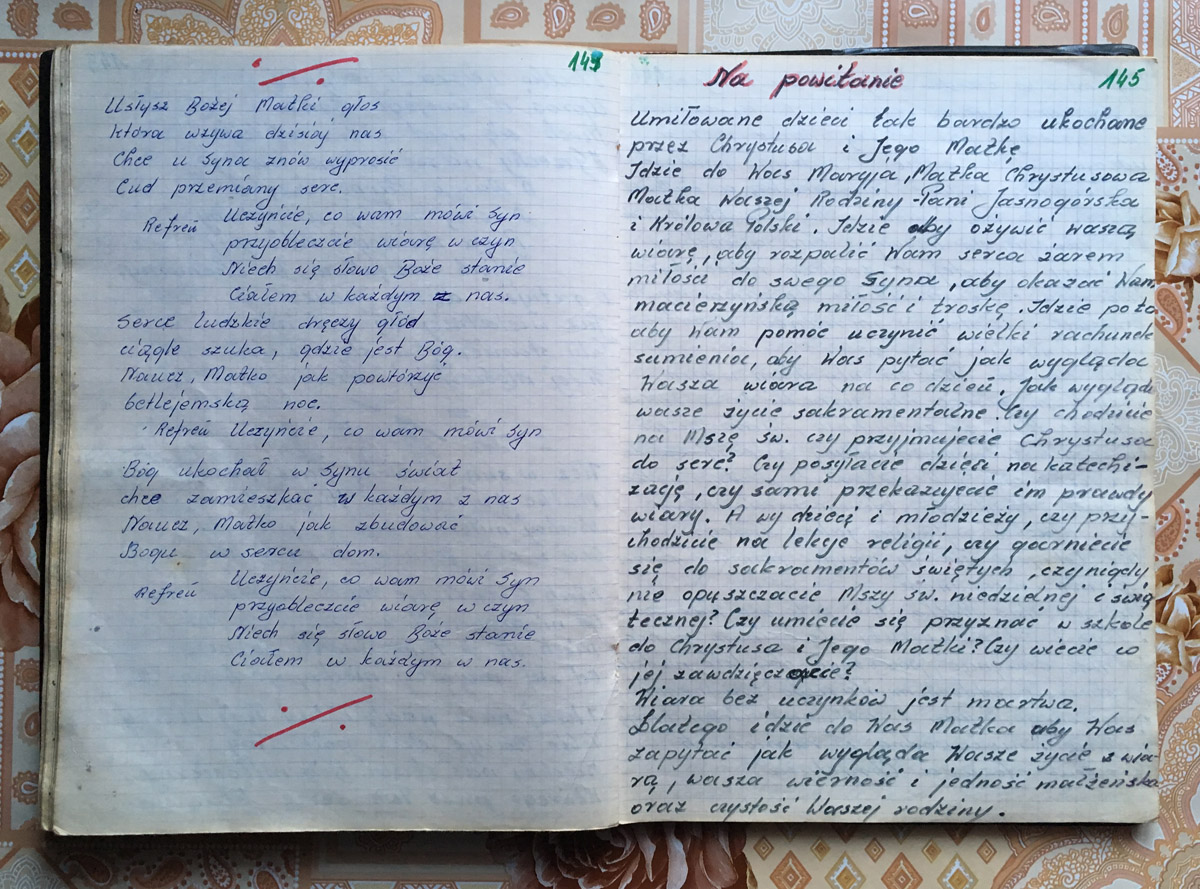 143
Usłysz Bożej Matki głos
która wzywa dzisiaj nas
Chce u Syna znów wyprosić
Cud przemiany serc.
Refreń Uczyńcie, co wam mówi Syn
przyobleczcie wiarę w czyn
Niech się słowo Boże stanie
Ciałem w każdym z nas.
Serce ludzkie dręczy głód
ciągle szuka, gdzie jest Bóg.
Naucz, Matko jak powtórzyć
betlejemską noc.
Refreń Uczyńcie, co wam mówi Syn
Bóg ukochał w Synu świat
chce zamieszkać w każdym z nas
Naucz, Matko jak zbudować
Bogu w sercu dom.
Refreń Uczyńcie, co wam mówi Syn
przyobleczcie wiarę w czyn
Niech się słowo Boże stanie
Ciałem w każdym w nas.
Na powitanie 145
Umiłowane dzieci tak bardzo ukochane
przez Chrystusa i Jego Matkę
Idzie do Was Maryja, Matka Chrystusowa
Matka Waszej Rodziny - Pani Jasnogórska
i Królowa Polski. Idzie aby ożywić waszą
wiarę, aby rozpalić Wam serca żarem
miłości do swego Syna, aby okazać Wam
macierzyńską miłość i troskę. Idzie po to
aby Wam pomóc uczynić wielki rachunek
sumienia, aby Was pytać jak wygląda
Wasza wiara na co dzień. Jak wygląda
wasze życie sakramentalne. Czy chodzicie
na Mszę św. czy przyjmujecie Chrystusa
do serc? Czy posyłacie dzieci na katechi-
zację, czy sami przekazujecie im prawdy
wiary. A wy dzieci i młodzieży, czy przy-
chodzicie na lekcje religii, czy garniecie
się do sakramentów świętych, czy nigdy
nie opuszczacie Mszy św. niedzielnej i świą
tecznej? Czy umiecie się przyznać w szkole
do Chrystusa i Jego Matki? Czy wiecie co
jej zawdzięczacie?
Wiara bez uczynków jest martwa.
Dlatego idzie do Was Matka aby Was
zapytać jak wygląda Wasze życie z wia-
rą, wasza wierność i jedność małżeńska
oraz czystość Waszej rodziny.